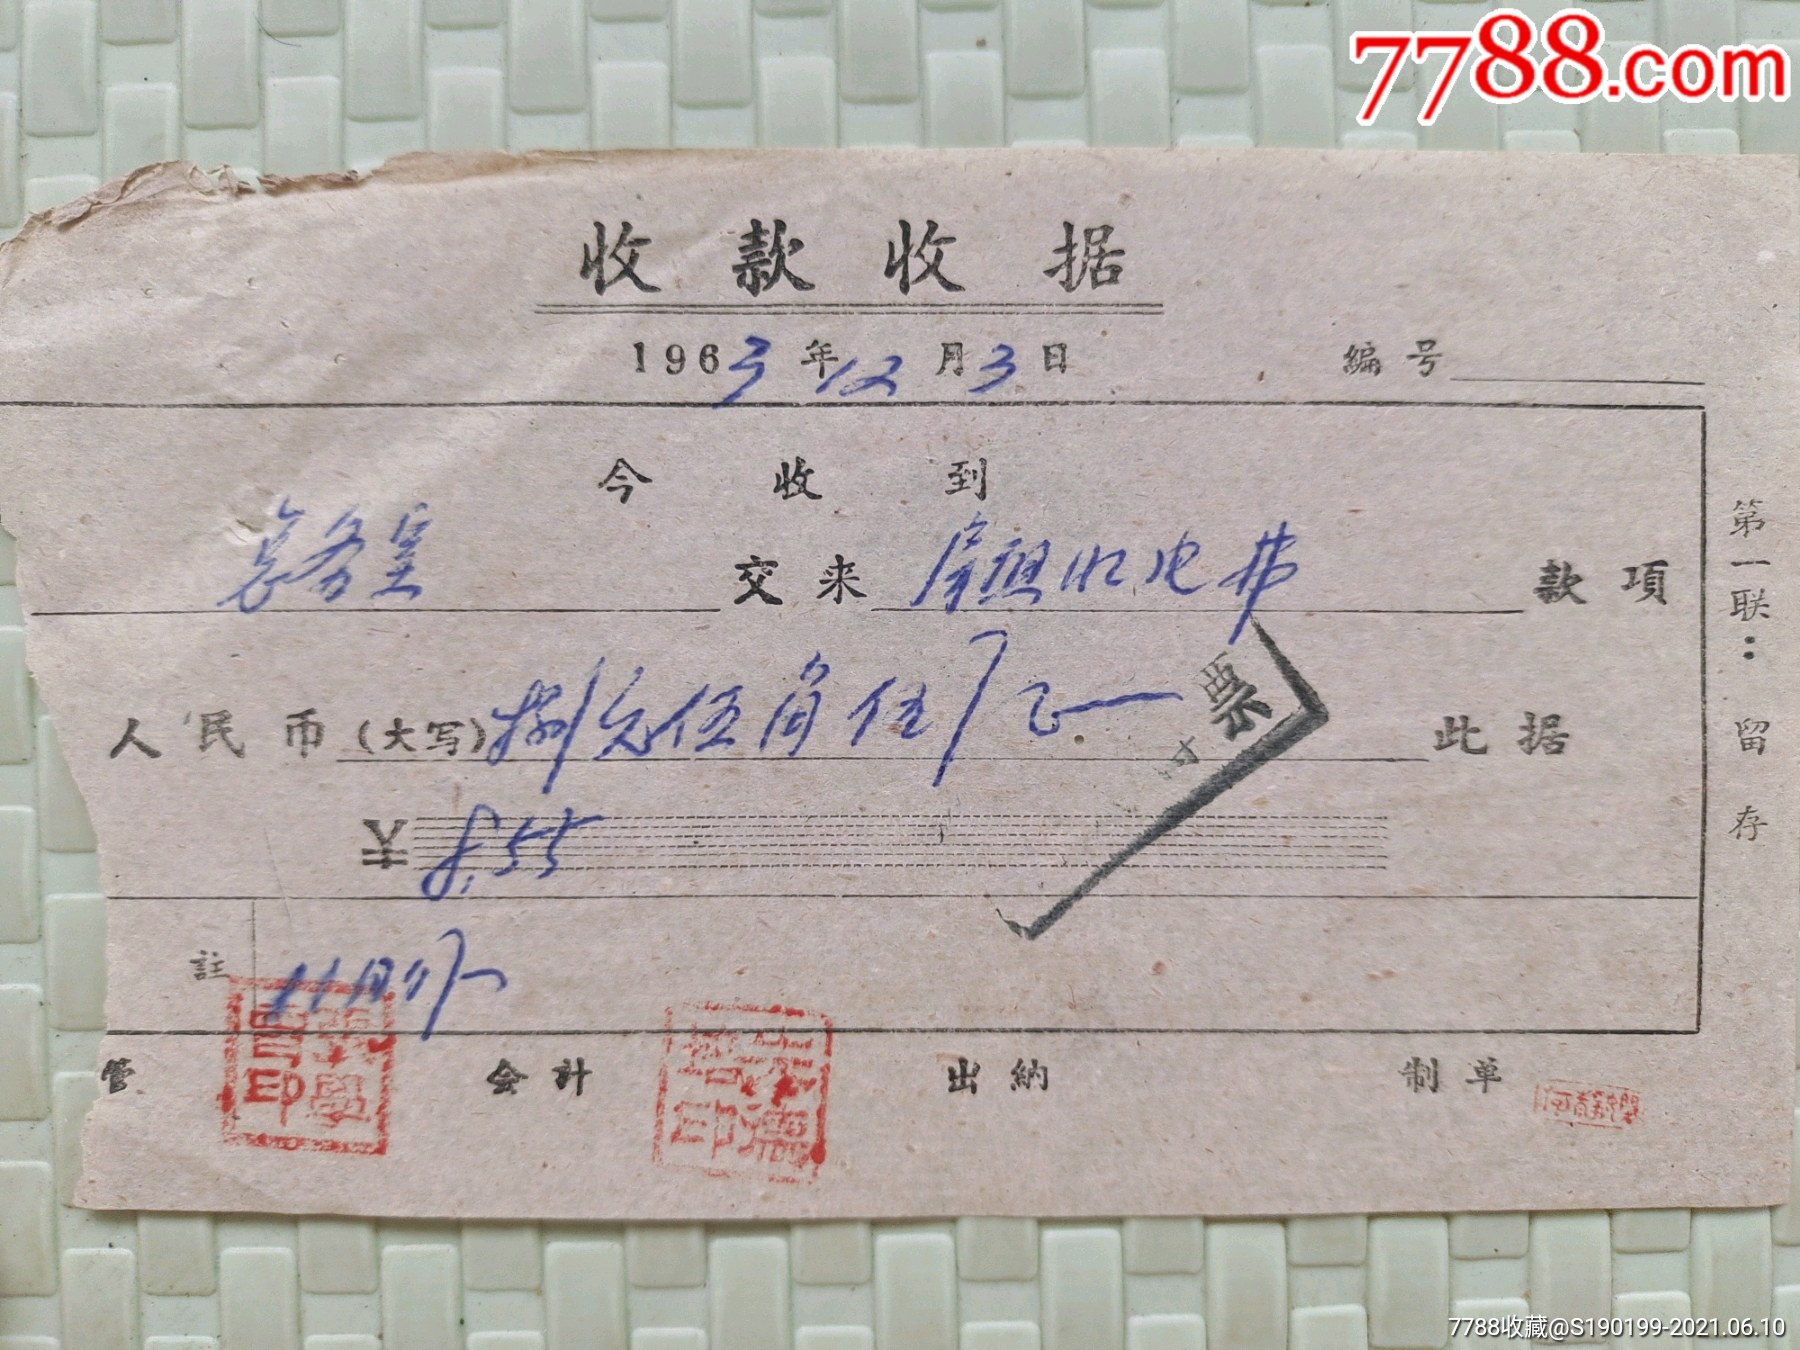 7788.com
收款收据
1963年12月3日 編号
今收到
总务室 交来 房租水电费 款項
人民币(大写)捌元伍角伍分正 此据
票
¥8.55
註 11月份
管 会計 出納 制单
第一联:留存
7788收藏@S190199-2021.06.10